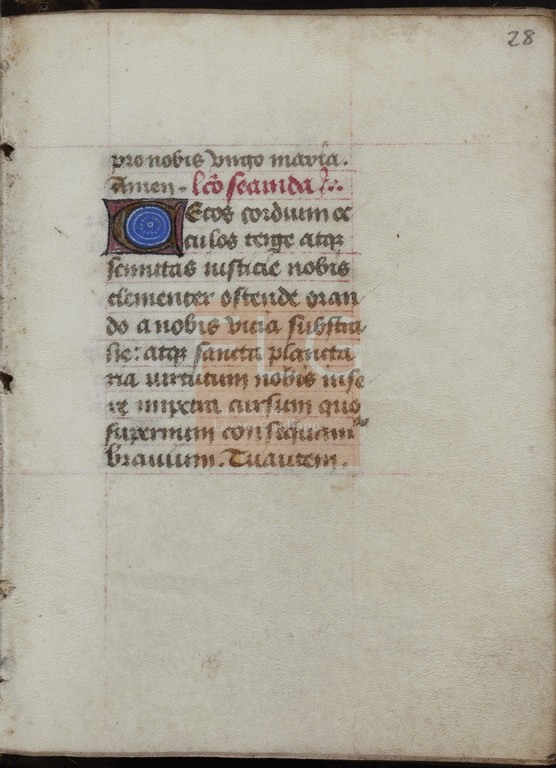 28
pro nobis virgo maria.
Amen. lcō secunda
Cecos cordium oc
culos terge atqȝ
semitas iusticie nobis
clementer ostende oran
do a nobis vicia subtra
he: atqȝ sancta planta
ria virtutum nobis inse
re impetra cursum quo
supernum consequam~
bravium. Tu autem.